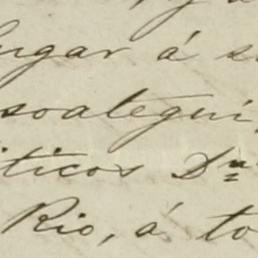 lugar á s
soategui,
iticos Dn
Rio, á to